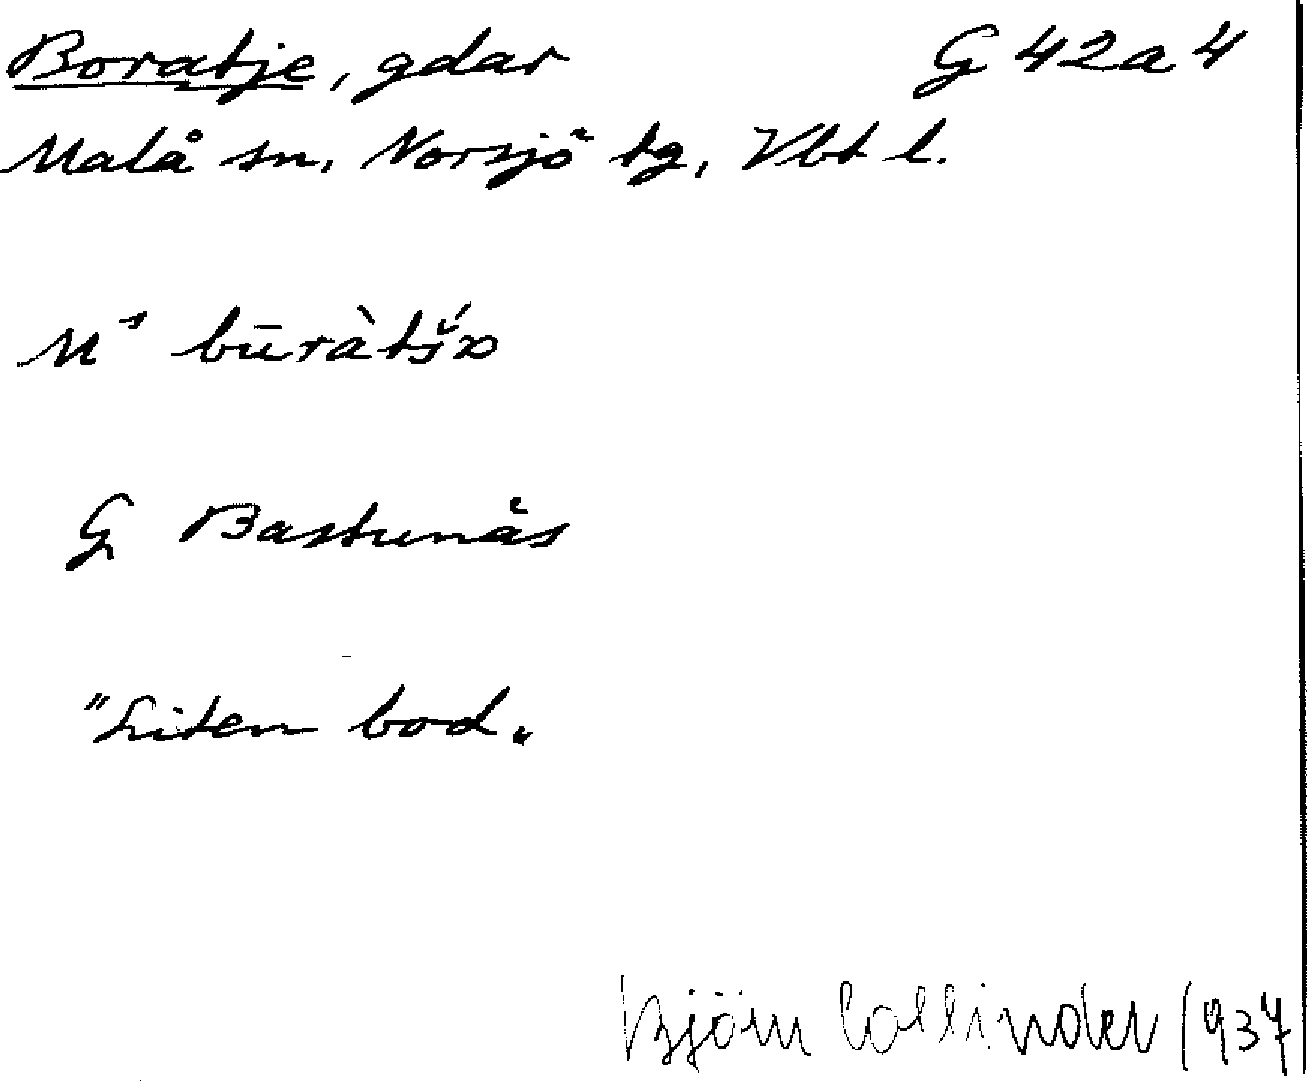 Boratje, gdar G 42a4
Malå sn, Norsjö tg, Vbt l.
G Bastunäs
"Liten bod"
Björn Collinder 1937